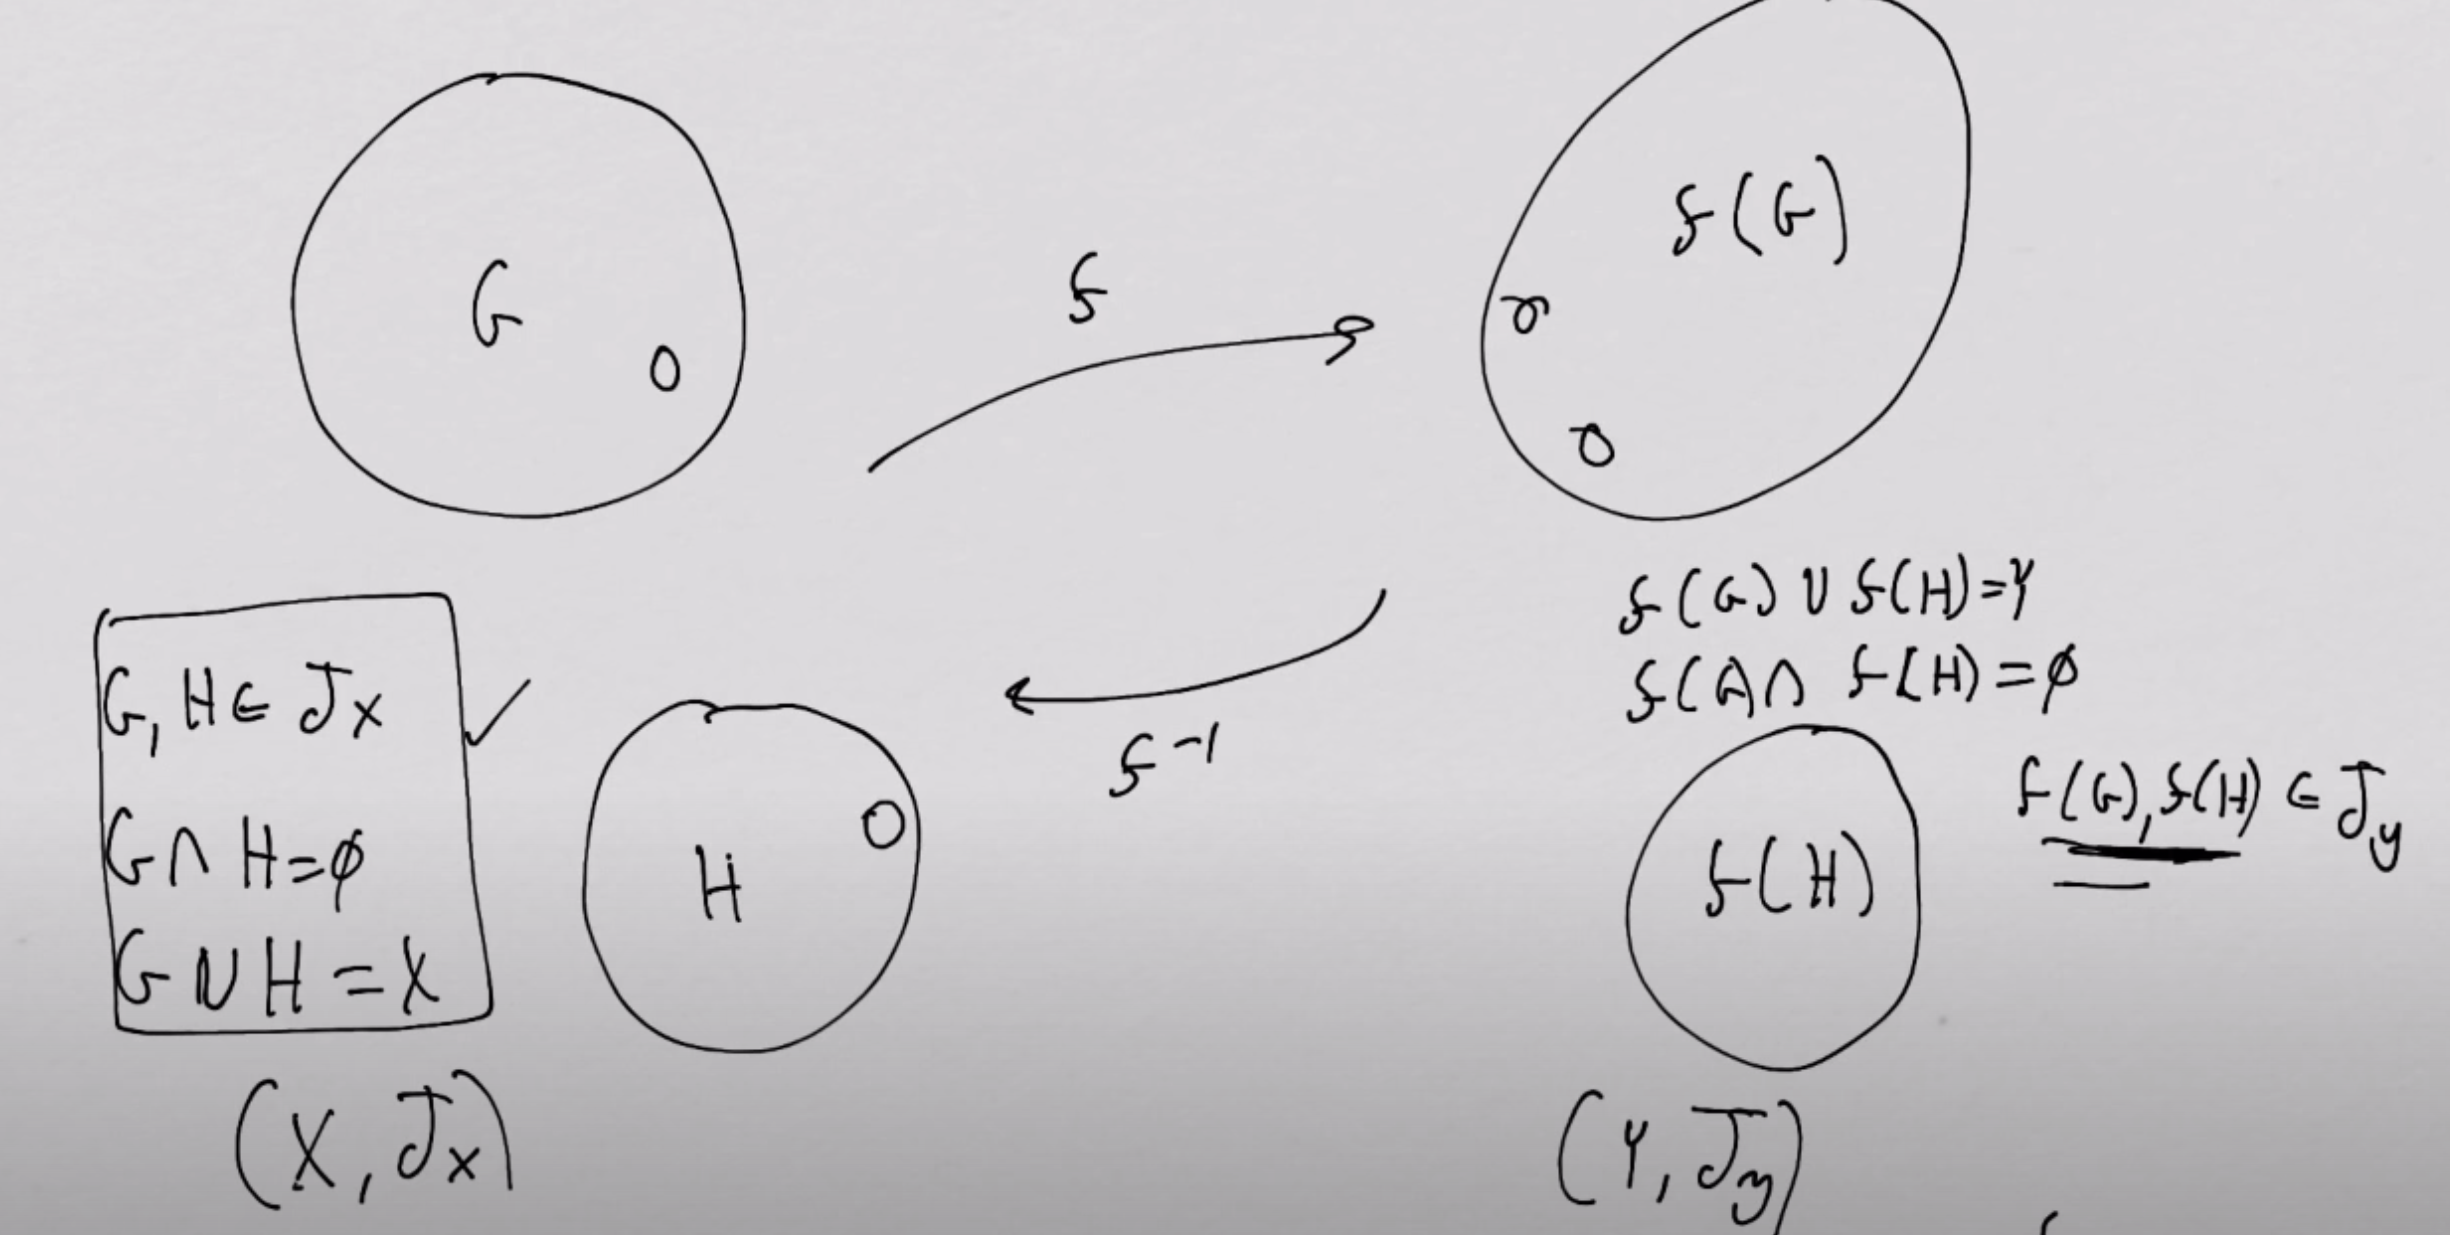 G
f
f(G)
f(G) ∪ f(H) = Y
f(G) ∩ f(H) = ϕ
G, H ∈ J_x
G ∩ H = ϕ
G ∪ H = X
f^-1
H
f(H)
f(G), f(H) ∈ J_y
(X, J_x)
(Y, J_y)